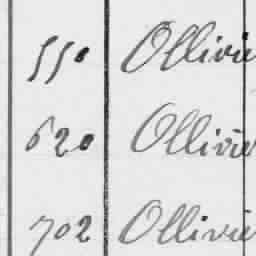 550 Ollivie
620 Ollivie
702 Ollivie